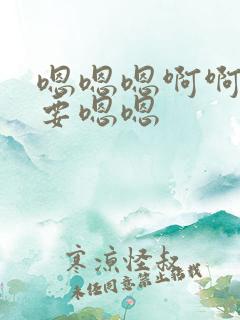 嗯嗯嗯啊啊
要嗯嗯
寒凉怪叔
未经同意禁止转载